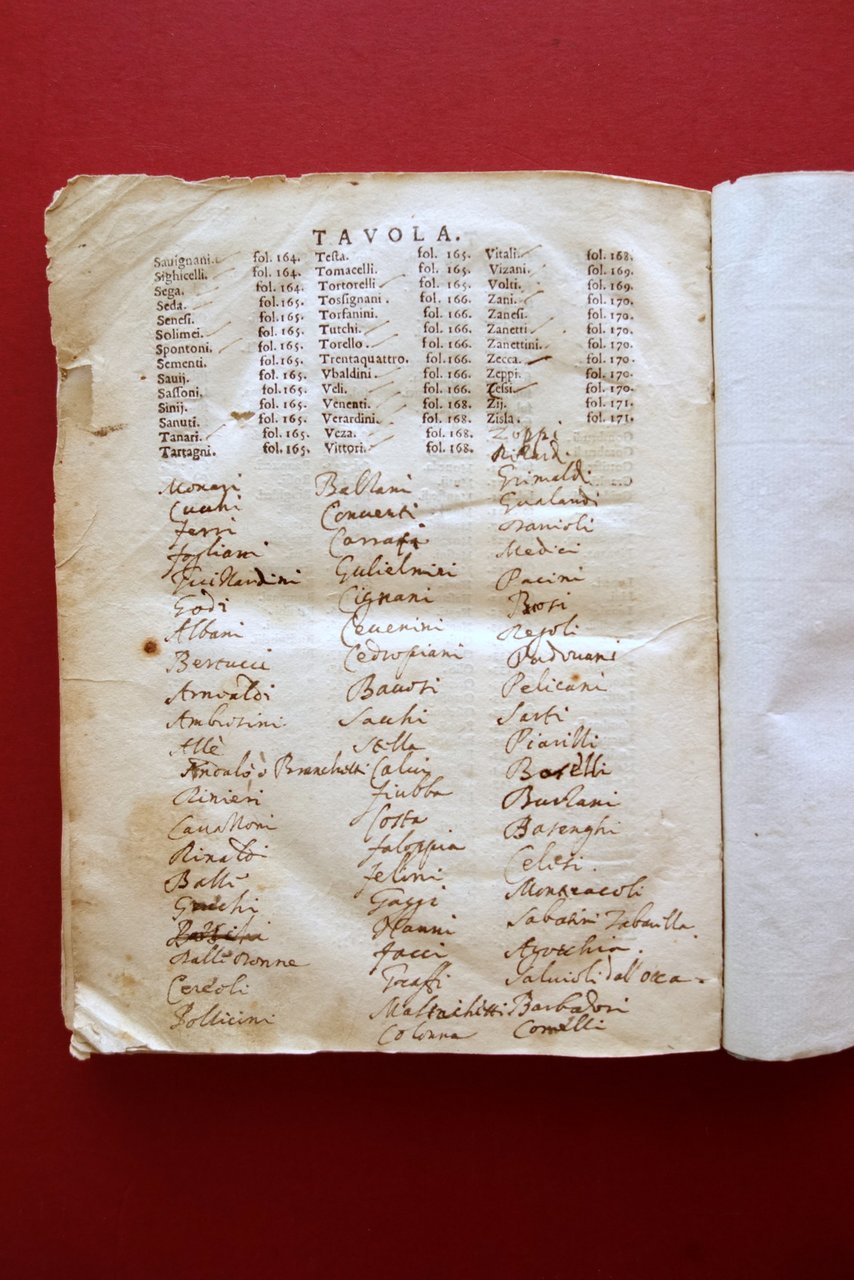 TAVOLA.
Sauignani. fol. 164.
Sighicelli. fol. 164.
Sega. fol. 164.
Seda. fol. 165.
Senesi. fol. 165.
Solimei. fol. 165.
Spontoni. fol. 165.
Sementi. fol. 165.
Sauij. fol. 165.
Sassoni. fol. 165.
Sinij. fol. 165.
Sanuti. fol. 165.
Tanari. fol. 165.
Tartagni. fol. 165.
Monari
Cucchi
Ferri
Fogliani
Guicciardini
Godi
Albani
Bertucci
Arnoaldi
Ambrosini
Allè
Andalò ò Branchetti
Rinieri
Cavalloni
Rinaldi
Balli
Balli Bonne
Cereoli
Bolticini
Testa. fol. 165.
Tomacelli. fol. 165.
Tortorelli fol. 165.
Tossignani. fol. 166.
Torfanini. fol. 166.
Tutchi. fol. 166.
Torello. fol. 166.
Trentaquattro. fol. 166.
Vbaldini. fol. 166.
Veli. fol. 166.
Venenti. fol. 168.
Verardini. fol. 168.
Veza. fol. 168.
Vittori. fol. 168.
Ballani
Conventi
Carrafa
Gulielmini
Cignani
Cevenini
Cedropiani
Bavosi
Sacchi
Stella
Calvi
Fiubba
Costa
Faloppia
Felini
Gaggi
Nanni
Facci
Graffi
Mattachetti
Colonna
Vitali. fol. 168.
Vizani. fol. 169.
Volti. fol. 169.
Zani. fol. 170.
Zanesi. fol. 170.
Zanetti fol. 170.
Zanettini. fol. 170.
Zecca. fol. 170.
Zeppi. fol. 170.
Zelsi. fol. 170.
Zij. fol. 171.
Zisla. fol. 171.
Zoppi
Ricardi
Grimaldi
Gualandi
Ranioli
Medici
Pacini
Bosi
Regoli
Padouani
Pelicani
Sarti
Piatelli
Boselli
Burlani
Basenghi
Celesi.
Montecacoli
Sabatini Zabarilla
Agocchia.
Salvioli dall'Orca-
Barbadori
Comelli